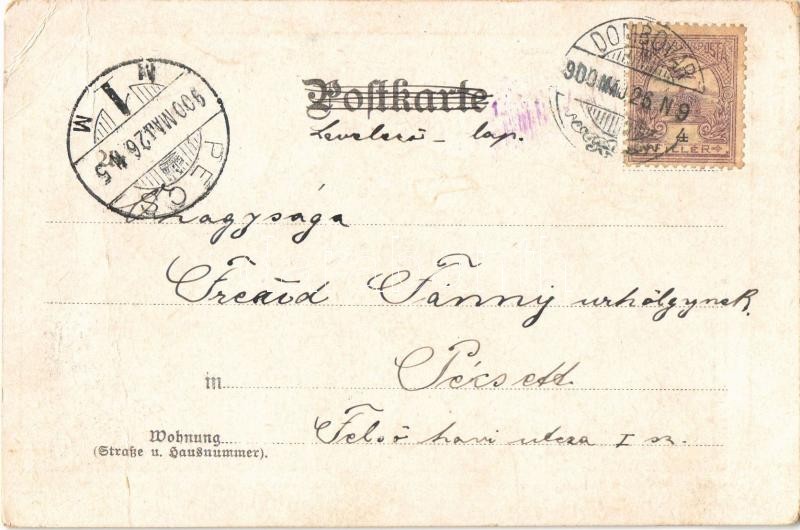 DOMBÓVÁR
900 MÁJ 26 N 9
4
FILLÉR
PÉCS
900 MÁJ 26 N 5
M
1
Postkarte
Levelező-lap.
Nagysága
Freund Fánny urhölgynek.
in Pécsett
Wohnung
(Straße u. Hausnummer).
Felső havi utcza I sz.